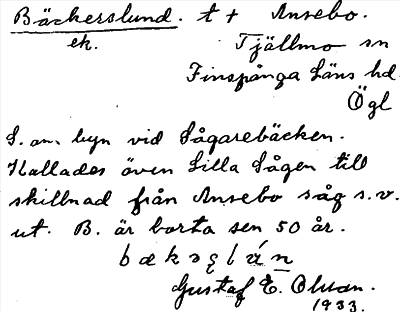 Bäckerslund. t + Ansebo.
ek. Tjällmo sn
Finspånga läns hd
Ögl
S. om byn vid Sågarebäcken.
Kallades även Lilla Sågen till
skillnad från Ansebo såg s.v.
ut. B. är borta sen 50 år.
Gustaf E. Olsson.
1933.